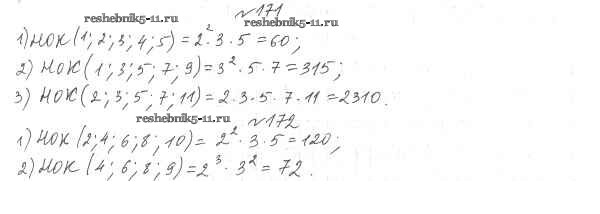 №171
reshebnik5-11.ru reshebnik5-11.ru
1) НОК (1; 2; 3; 4; 5) = 2² · 3 · 5 = 60;
2) НОК (1; 3; 5; 7; 9) = 3² · 5 · 7 = 315;
3) НОК (2; 3; 5; 7; 11) = 2 · 3 · 5 · 7 · 11 = 2310.
reshebnik5-11.ru №172
1) НОК (2; 4; 6; 8; 10) = 2² · 3 · 5 = 120;
2) НОК (4; 6; 8; 9) = 2³ · 3² = 72.